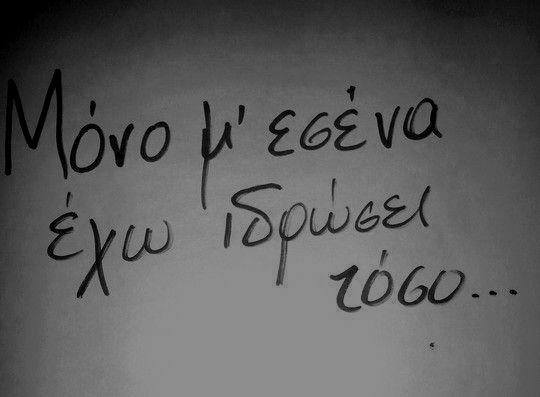 Μόνο μ' εσένα
έχω ιδρώσει
τόσο...